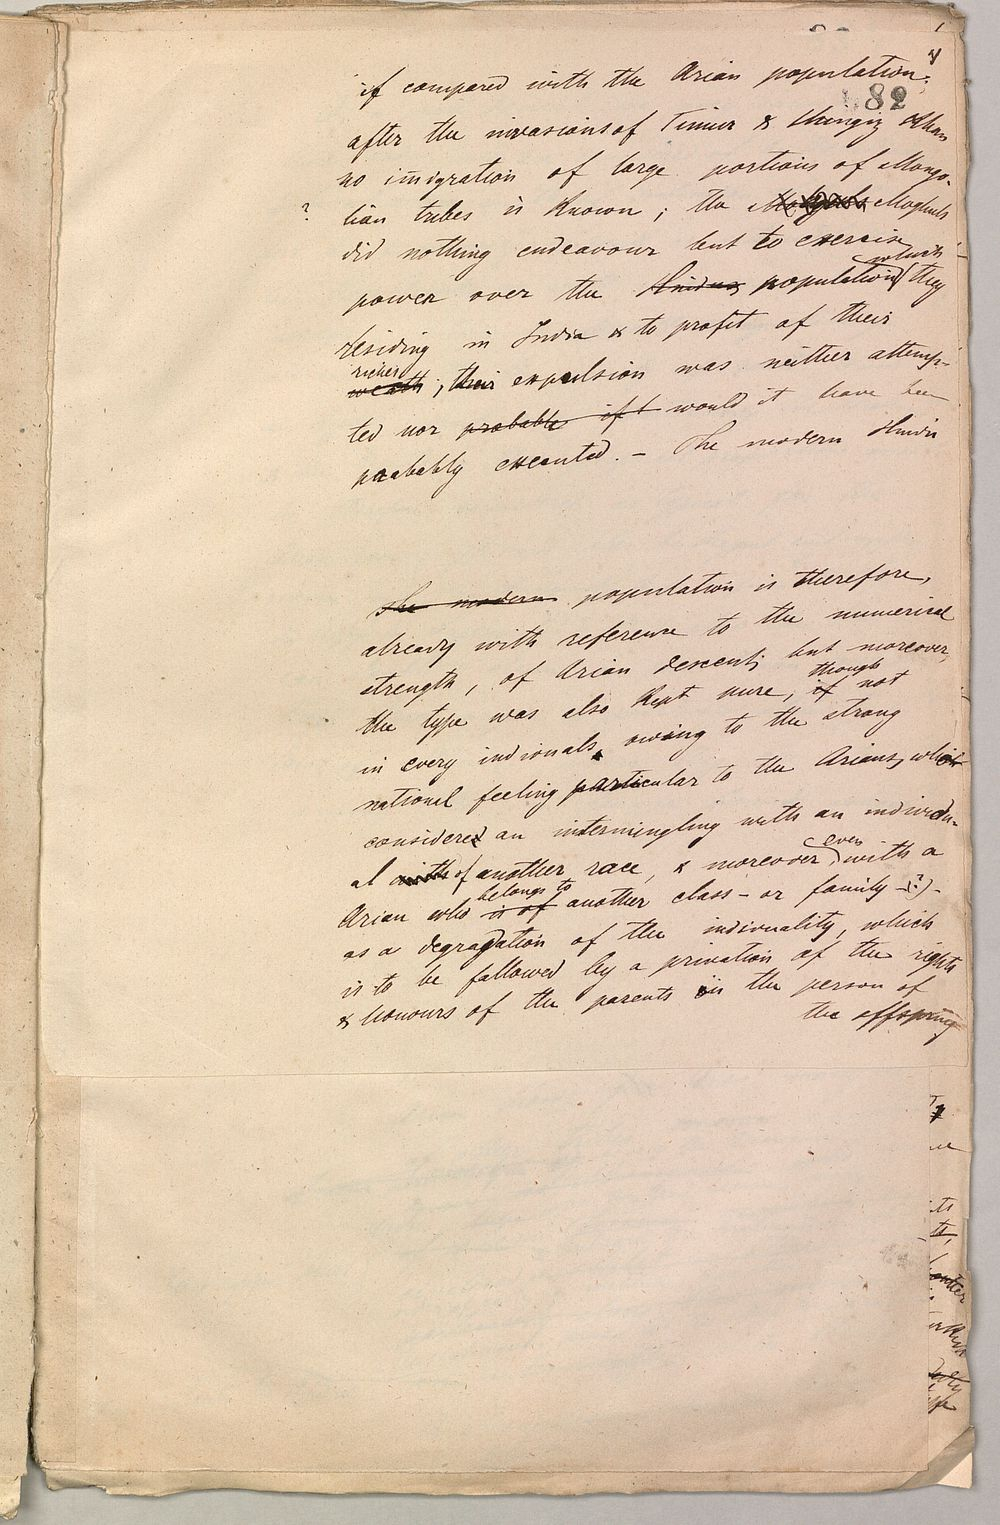 82
if compared with the Arian population;
after the invasions of Timur & Chengiz Khan
no imigration of large portions of Mongo-
? lian tribes is known; the Moghuls Moghuls
did nothing endeavour but to exercise
which
power over the Hindus population they
residing in India & to profit of their
riches
wealth; their expulsion was neither attemp-
ted nor probable if t would it have been
probably executed. – The modern Hindu
The modern population is therefore,
already with reference to the numerical
strength, of Arian descent; but moreover,
though
the type was also kept pure, if not
in every indivuals, owing to the strong
national feeling particular to the Arians, which
considered an intermingling with an individu-
even
al with of another race, & moreover with a
belongs to
Arian who is of another class – or family – (?) –
as a degradation of the indivuality, which
is to be followed by a privation of the rights
& honours of the parents in the person of
the offspring